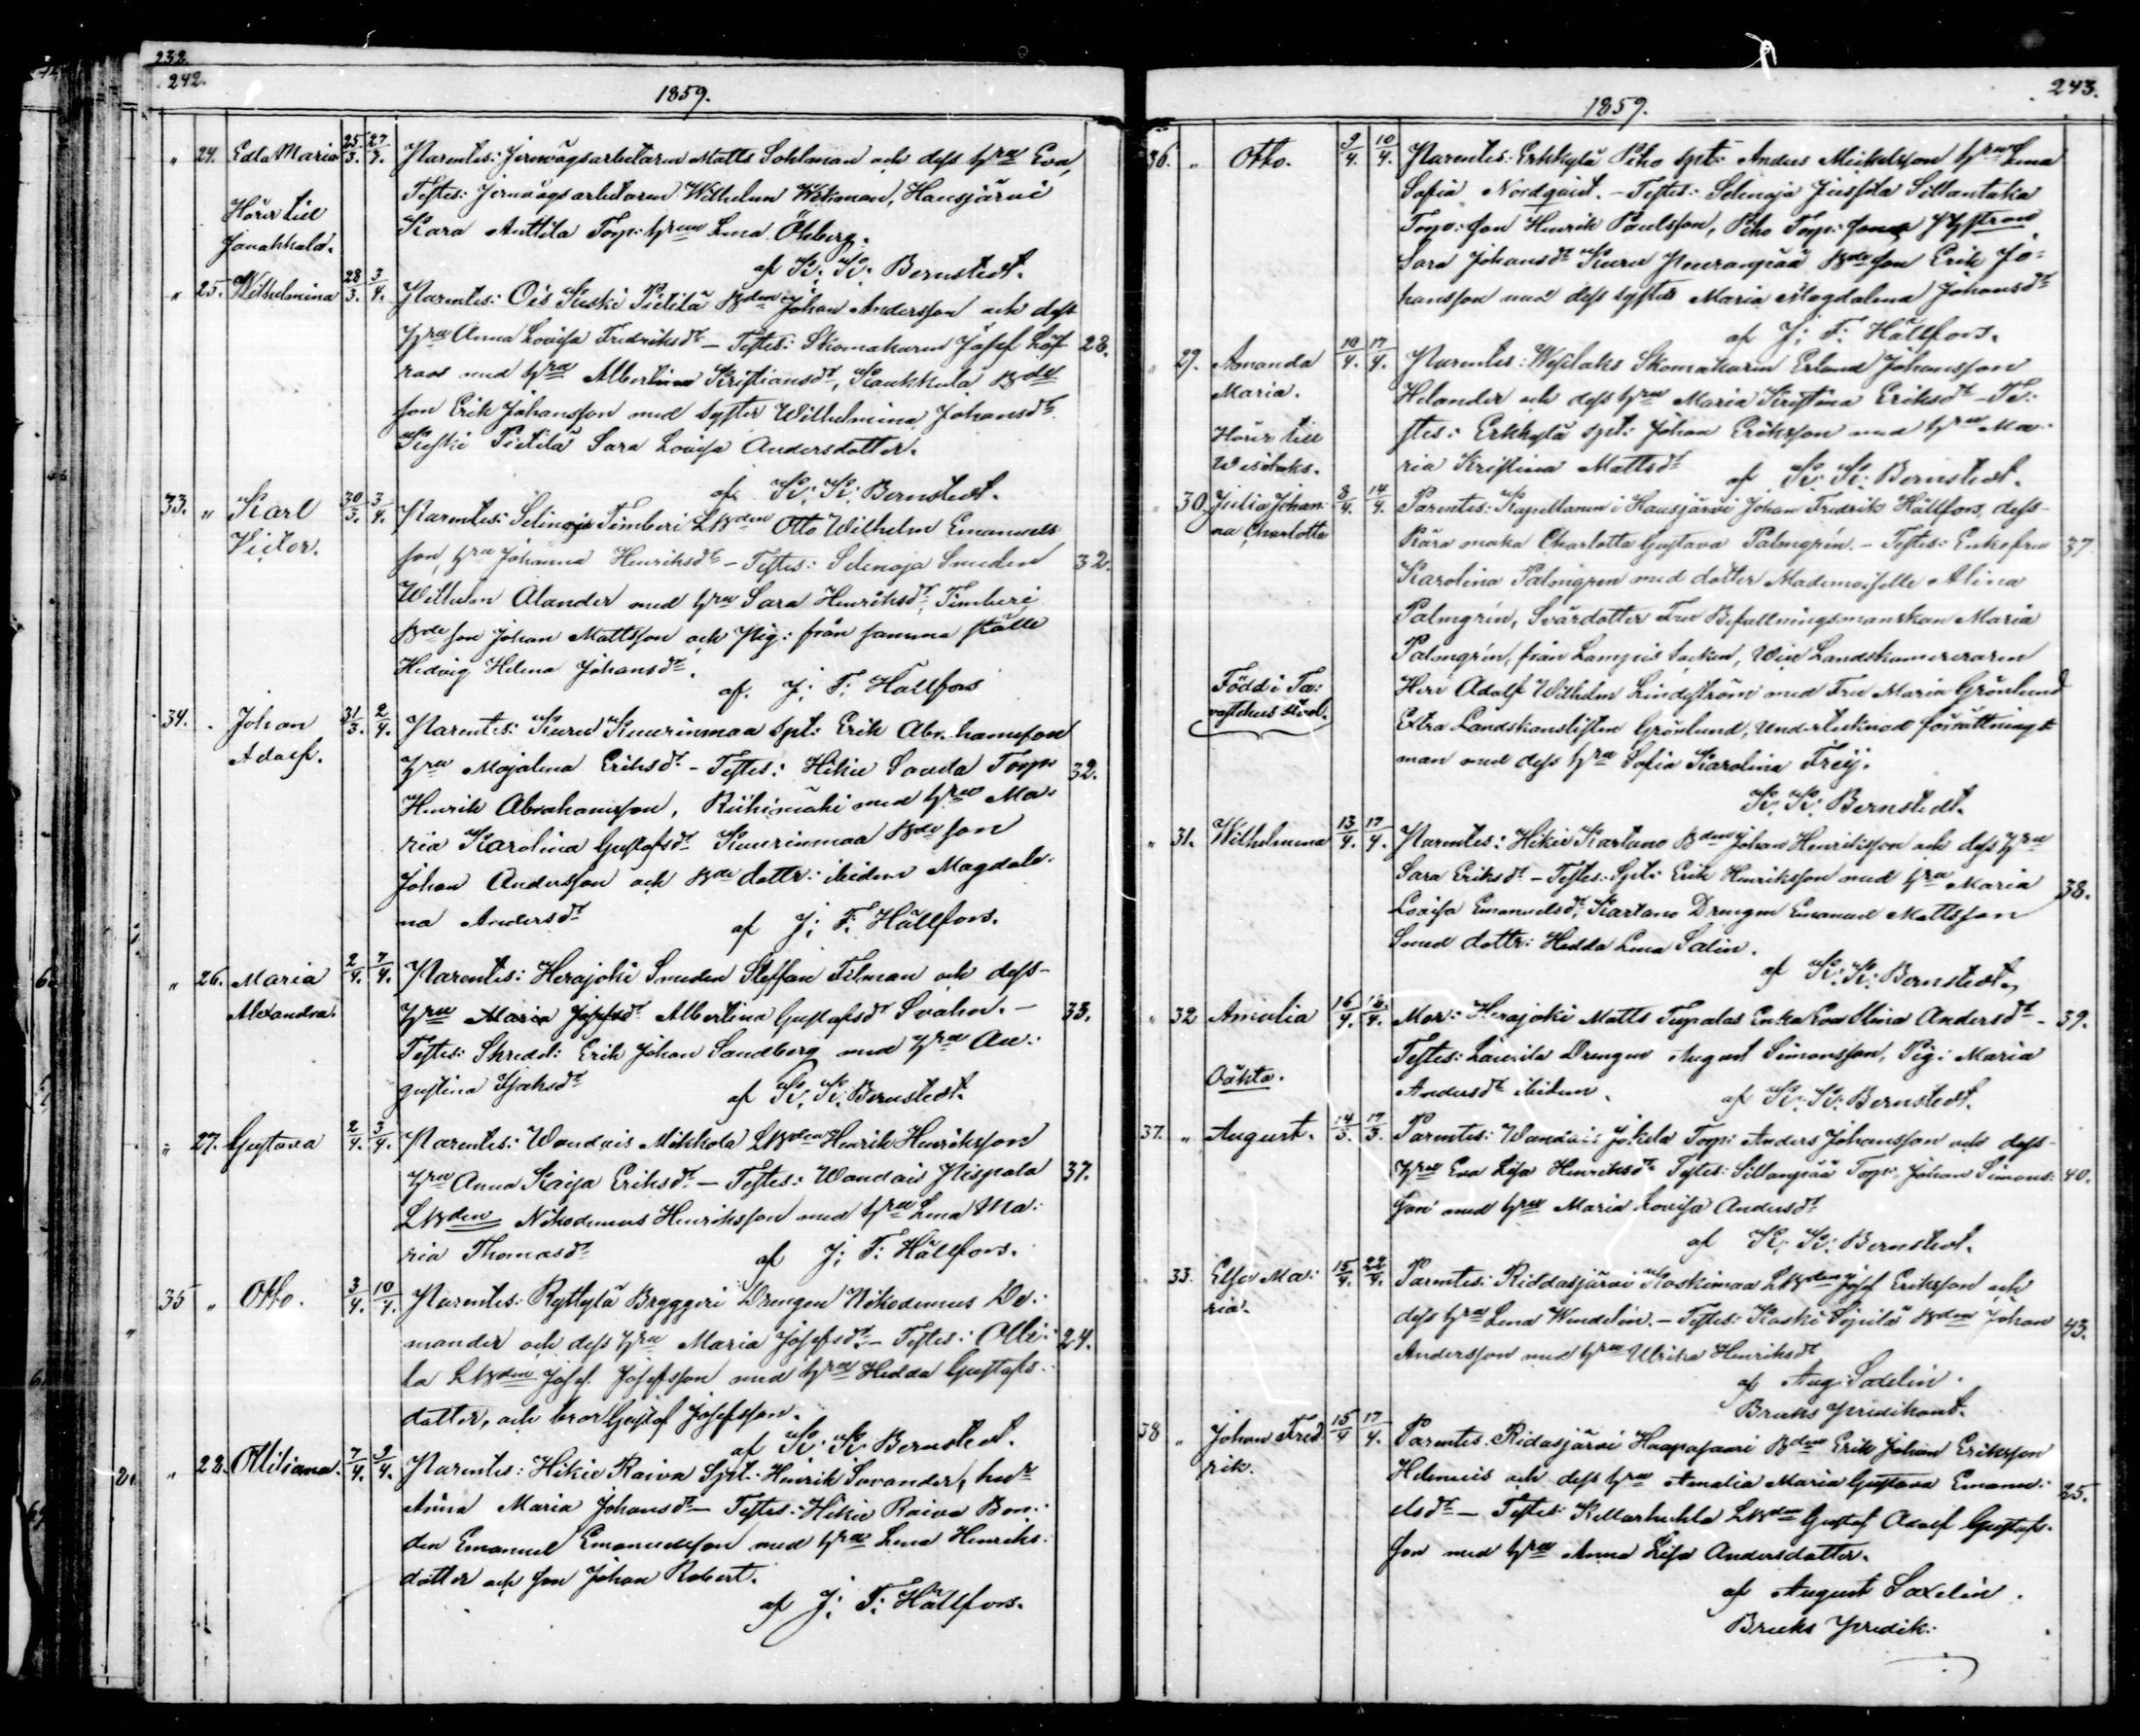 232.
242.
1859.
" 24. Edla Maria 25/3. 27/3. Parentes: Jernvägsarbetaren Matts Sohlman och dess hru Eva,
Testes: Jernvägsarbetaren Wilhelm Wikman, Hausjärvi
Hörer till
Kara Anttila Torp: hru Lena Öhberg.
Janakkala.
af K: K: Bernstedt.
" 25. Wilhelmina 28/3. 3/4. Parentes: Ois Kuski Pietilä Bden Johan Andersson och dess
hru Anna Lovisa Fredriksdr – Testes: Skomakaren Josef Löf 28.
roos med hru Albertina Kristiansdr, Kaukkula Bde
son Erik Johansson med syster Wilhelmina Johansdr
Pietilä Sara Lovisa Andersdotter.
af K: K: Bernstedt.
33. " Karl 30/3. 3/4. Parentes: Selinoja Timberi LBden Otto Wilhelm Emanuels
Victor.
son, hru Johanna Henriksdr – Testes: Selinoja Smeden 32.
Wilhelm Alander med hru Sara Henriksdr, Timberi
Bde son Johan Mattsson och Pig: från samma ställe
Hedvig Helena Johansdr.
af. J: F: Hällfors
34. . Johan 31/3. 2/4. Parentes: Kuru Kuurinmaa Spt: Erik Abrahamsson
Adolf.
hru Majalena Eriksdr – Testes: Hikie Torp: 32.
Henrik Abrahamsson, Riihimäki med hru Ma:
ria Karolina Gustafsdr Kuurinmaa Bde son
Johan Andersson och Bde dottr: ibidem Magdale:
na Andersdr
af J: F: Hällfors.
" 26. Maria 2/4. 7/4. Parentes: Herajoki Smeden Steffan Tilman och dess
Alexandra.
hru Maria Josefsdr Albertina Gustafsdr Svahn. – 33.
Testes: Skredd: Erik Johan Sandberg med hru Au:
gustina Isaksdr
af K: K: Bernstedt.
" 27. Gustava 2/4. 3/4. Parentes: Wandais Mikkola LBden Henrik Henriksson
hru Anna Kaisa Eriksdr – Testes: Wandais Pispala 37.
LBden Nikodemus Henriksson med hru Lena Ma:
ria Thomasdr
af J: F: Hällfors.
35 " Otto. 3/4. 10/4. Parentes: Ryttylä Bryggeri Drengen Nikodemus We:
mander och dess hru Maria Josefsdr – Testes: Olli: 24.
la LBden Josef Josefsson med hru Hedda Gustafs:
dotter, och bror Gustaf Josefsson.
af K: K: Bernstedt.
" 28. Otiliana. 7/4. 9/4. Parentes: Hikie Raiva Spt: Henrik Savander, hru
Anna Maria Johansdr – Testes: Hikie Raiva Bon:
den Emanuel Emanuelsson med hru Lena Henriks:
dotter och son Johan Robert.
af J: F: Hällfors.
243.
1859.
36. " Otto. 9/4. 10/4. Parentes: Erkkylä Piho Spt: Anders Mickelsson hru Lena
Sofia Nordquist. – Testes: Selinoja Jussila Sillantaka
Torp: son Henrik Paulsson, Piho Torp:
Sara Johansdr Kuru Peuranpää Bde son Erik Jo:
hansson med dess syster Maria Magdalena Johansdr
af J: F: Hällfors.
" 29. Amanda 10/4. 17/4. Parentes: Wesilaks Skomakaren Erland Johansson
Maria.
Helander och dess hru Maria Kristina Eriksdr – Te:
Hörer till
stes: Erkkylä Spt: Johan Eriksson med hru Ma:
Wesilaks.
ria Kristina Mattsdr
af K: K: Bernstedt.
" 30. Julia Johan: 8/4. 14/4. Parentes: Kapellanen i Hausjärvi Johan Fredrik Hällfors, dess
na Charlotta
Kära maka Charlotta Gustava Palmgrén. – Testes: Enkefru 37
Karolina Palmgren med dotter Mademoiselle Alina
Palmgrén, Svärdotter Fru Befallningsmanskan Maria
Palmgrén, från Lampis Socken, Vice Landskamreraren
Född i Ta:
Herr Adolf Wilhelm Lindström med Fru Maria Grönlund
vastehus stad.
Extra Landskanslisten Grönlund, Undertecknad förrättnings
man med dess hru Sofia Karolina Freij.
K: K: Bernstedt.
" 31. Wilhelmina 13/4. 17/4. Parentes: Hikie Kartano Bden Johan Henriksson och dess hru
Sara Eriksdr – Testes: Spt: Erik Henriksson med hru Maria 38.
Lovisa Emanuelsdr, Kartano Drengen Emanuel Mattsson
Smed dottr: Hedda Lena Salin.
af K: K: Bernstedt.
" 32 Amalia 16/4. /4. Mor: Herajoki Matts Enka Eva Stina Andersdr – 39.
Testes: Laurila Drengen August Simonsson, Pig: Maria
Oäkta.
Andersdr ibidem.
af K: K: Bernstedt.
37. " August. 14/3. 17/3. Parentes: Wandais Jokela Torp: Anders Johansson och dess
hru Eva Lisa Henriksdr Testes: Sillanpää Torp: Johan Simons: 40.
son med hru Maria Lovisa Andersdr
af K: K: Bernstedt.
" 33. Elsa Ma: 15/4. 22/4. Parentes: Riddasjärvi Koskimaa LBden Josef Eriksson och
ria.
dess hru Lena Wendelin. – Testes: Koski Bden Johan 43.
Andersson med hru Ulrika Henriksdr
af Aug: Saxelin.
Bruks predikant.
38 " Johan Fred 15/4 17/4. Parentes: Ridasjärvi Haapasaari Bden Erik Johan Eriksson
rik.
Helenius och dess hru Amalia Maria Gustava Emanu: 25.
elsdr – Testes: LBden Gustaf Adolf Gustafs:
son med hru Anna Lisa Andersdotter.
af August Saxelin.
Bruks predik: